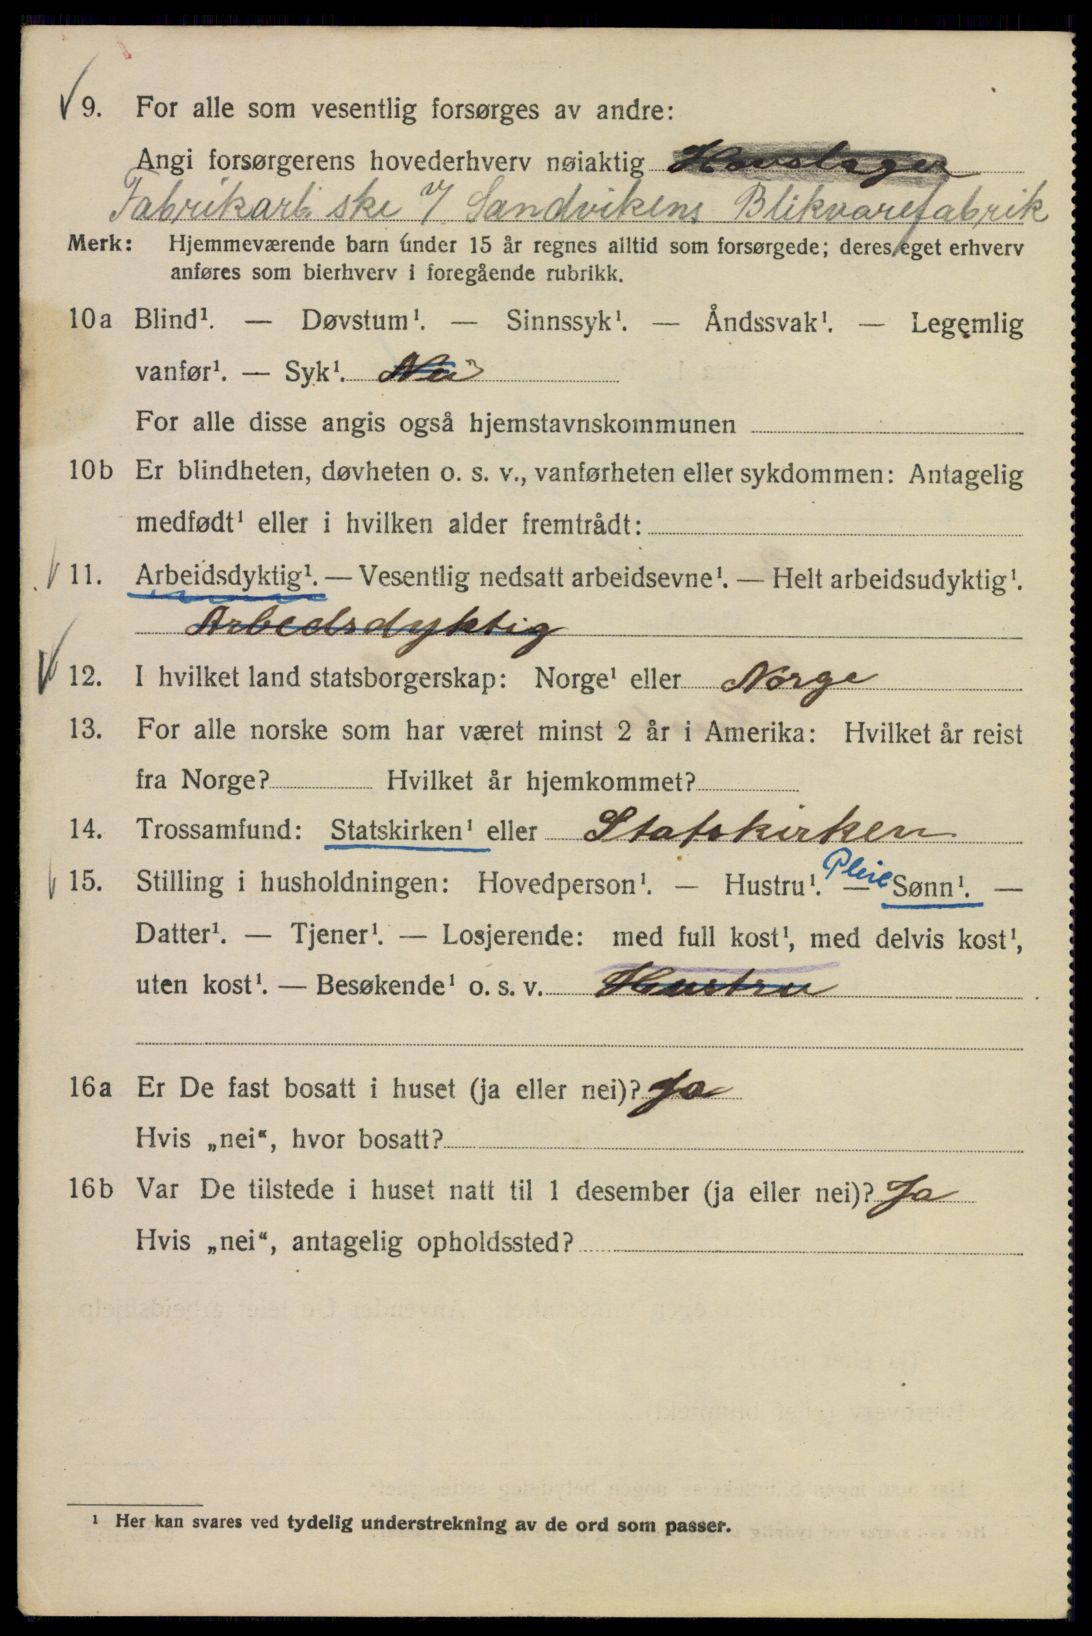 9. For alle som vesentlig forsørges av andre:
Angi forsørgerens hovederhverv nøiaktig Hovslager
Fabrikarb.ske v/ Sandvikens Blikvarefabrik
Merk: Hjemmeværende barn under 15 år regnes alltid som forsørgede; deres eget erhverv
anføres som bierhverv i foregående rubrikk.
10a Blind¹. — Døvstum¹. — Sinnssyk¹. — Åndssvak¹. — Legemlig
vanfør¹. — Syk¹. Nei
For alle disse angis også hjemstavnskommunen
10b Er blindheten, døvheten o. s. v., vanførheten eller sykdommen: Antagelig
medfødt¹ eller i hvilken alder fremtrådt:
11. Arbeidsdyktig¹. — Vesentlig nedsatt arbeidsevne¹. — Helt arbeidsudyktig¹.
Arbedsdyktig
12. I hvilket land statsborgerskap: Norge¹ eller Norge
13. For alle norske som har været minst 2 år i Amerika: Hvilket år reist
fra Norge? Hvilket år hjemkommet?
14. Trossamfund: Statskirken¹ eller Statskirken
15. Stilling i husholdningen: Hovedperson¹. — Hustru¹. — Pleie Sønn¹. —
Datter¹. — Tjener¹. — Losjerende: med full kost¹, med delvis kost¹,
uten kost¹. — Besøkende¹ o. s. v. Hustru
16a Er De fast bosatt i huset (ja eller nei)? Ja
Hvis „nei“, hvor bosatt?
16b Var De tilstede i huset natt til 1 desember (ja eller nei)? Ja
Hvis „nei“, antagelig opholdssted?
¹ Her kan svares ved tydelig understrekning av de ord som passer.